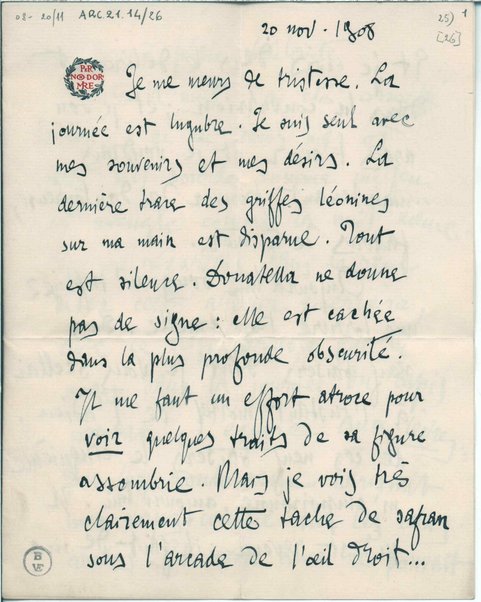 08- 20/11 ARC.21.14/26
25) 1
[26]
20 nov. 1908
PER
NON DOR
MIRE
Je me meurs de tristesse. La
journée est lugubre. Je suis seul avec
mes souvenirs et mes désirs. La
dernière trace des griffes léonines
sur ma main est disparue. Tout
est silence. Donatella ne donne
pas de signe : elle est cachée
dans la plus profonde obscurité.
Il me faut un effort atroce pour
voir quelques traits de sa figure
assombrie. Mais je vois très
clairement cette tache de safran
sous l'arcade de l'œil droit...